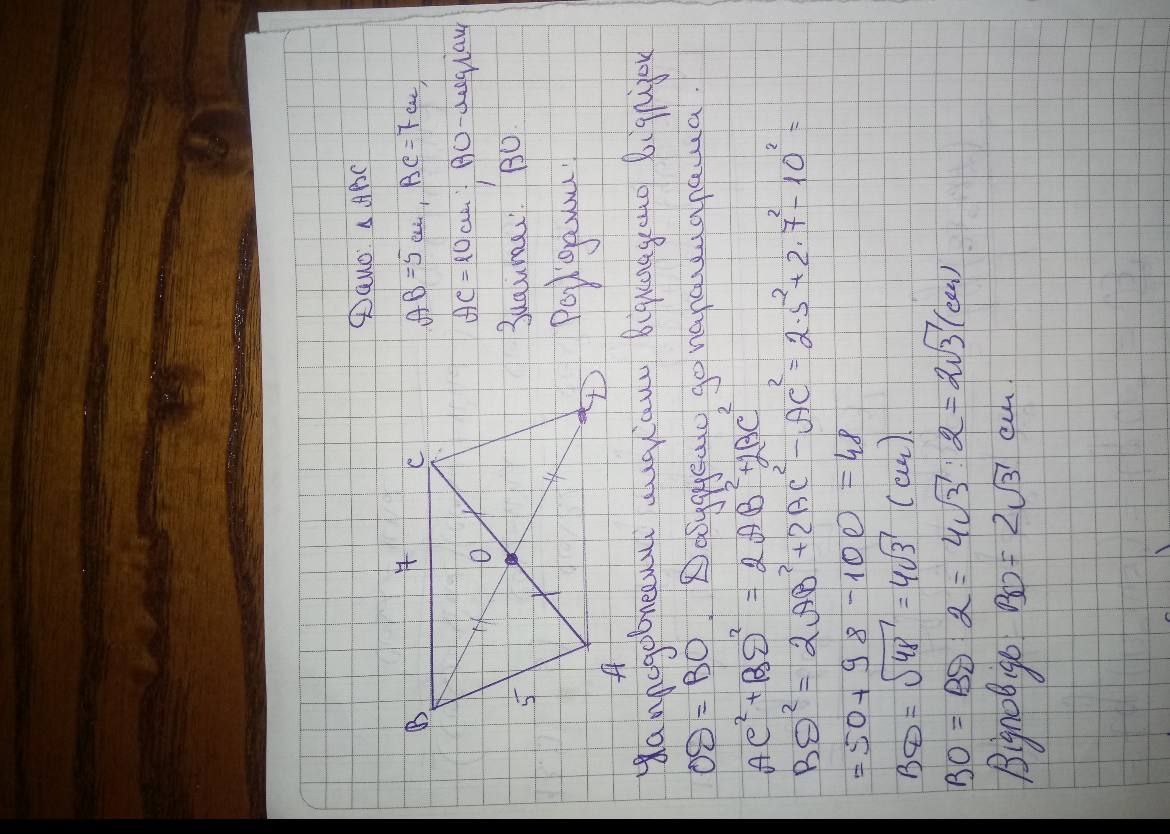 Дано: Δ ABC
AB = 5 см, BC = 7 см,
AC = 10 см, BO - медіана
Знайти: BO.
Розв'язання:
B
7
C
O
5
A
D
На продовженні медіани відкладемо відрізок
OD = BO. Добудуємо до паралелограма.
AC² + BD² = 2AB² + 2BC²
BD² = 2AB² + 2BC² - AC² = 2·5² + 2·7² - 10² =
= 50 + 98 - 100 = 48
BD = √48 = 4√3 (см).
BO = BD : 2 = 4√3 : 2 = 2√3 (см)
Відповідь: BO = 2√3 см.